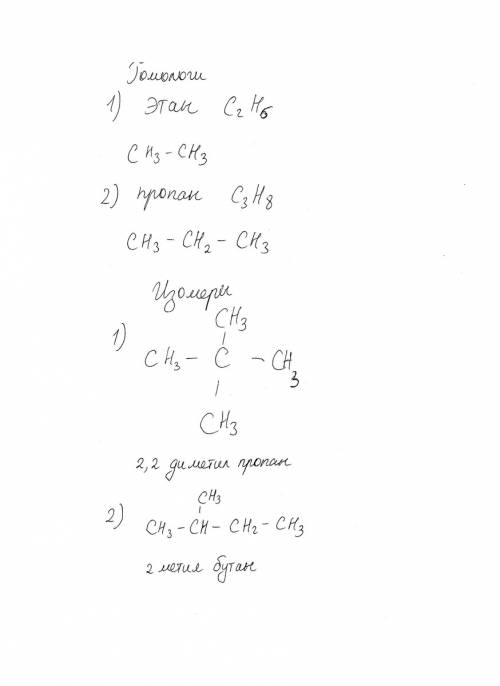 Гомологи
1) Этан C₂H₆
CH₃ – CH₃
2) пропан C₃H₈
CH₃ – CH₂ – CH₃
Изомеры
CH₃
1) CH₃ – C – CH₃
CH₃
2,2 диметил пропан
CH₃
2) CH₃ – CH – CH₂ – CH₃
2 метил бутан